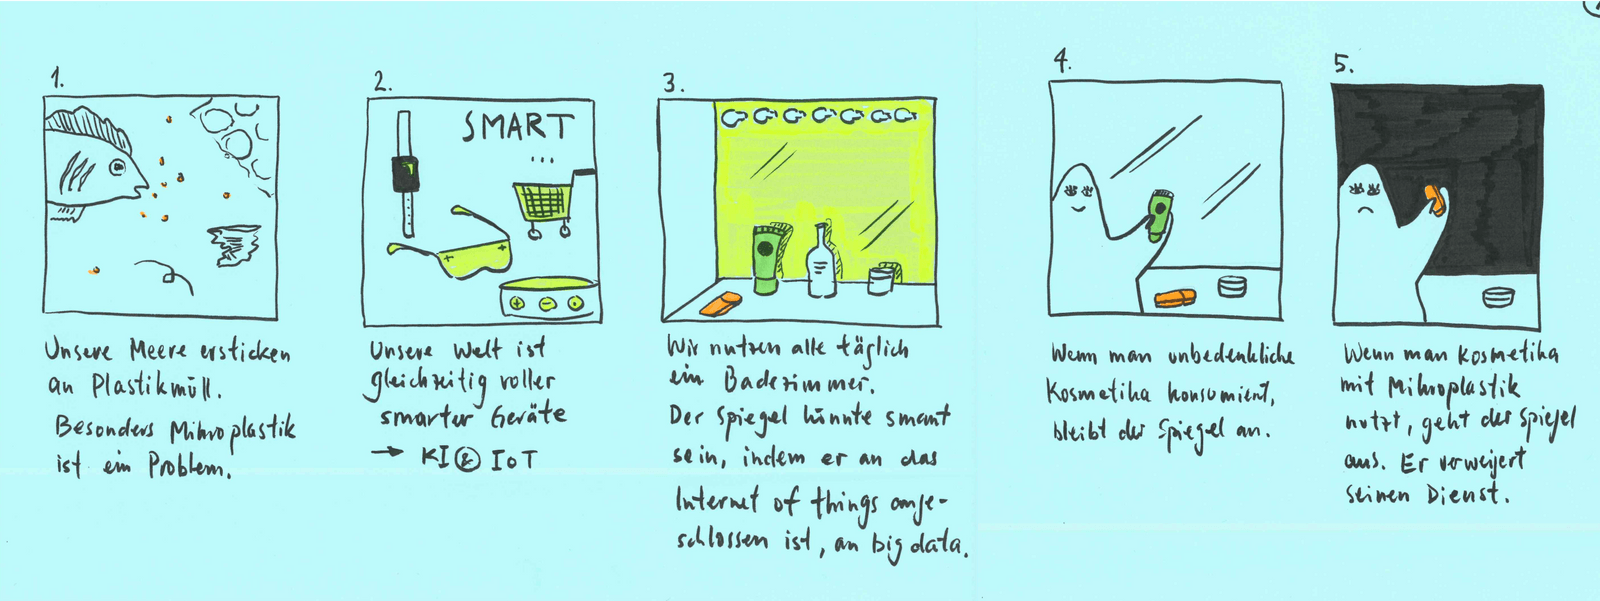 1.
Unsere Meere ersticken
an Plastikmüll.
Besonders Mikroplastik
ist ein Problem.
2.
SMART
...
Unsere Welt ist
gleichzeitig voller
smarter Geräte
→ KI & IoT
3.
Wir nutzen alle täglich
ein Badezimmer.
Der Spiegel könnte smart
sein, indem er an das
Internet of things ange-
schlossen ist, an big data.
4.
Wenn man unbedenkliche
Kosmetika konsumiert,
bleibt der Spiegel an.
5.
Wenn man Kosmetika
mit Mikroplastik
nutzt, geht der Spiegel
aus. Er verweigert
seinen Dienst.